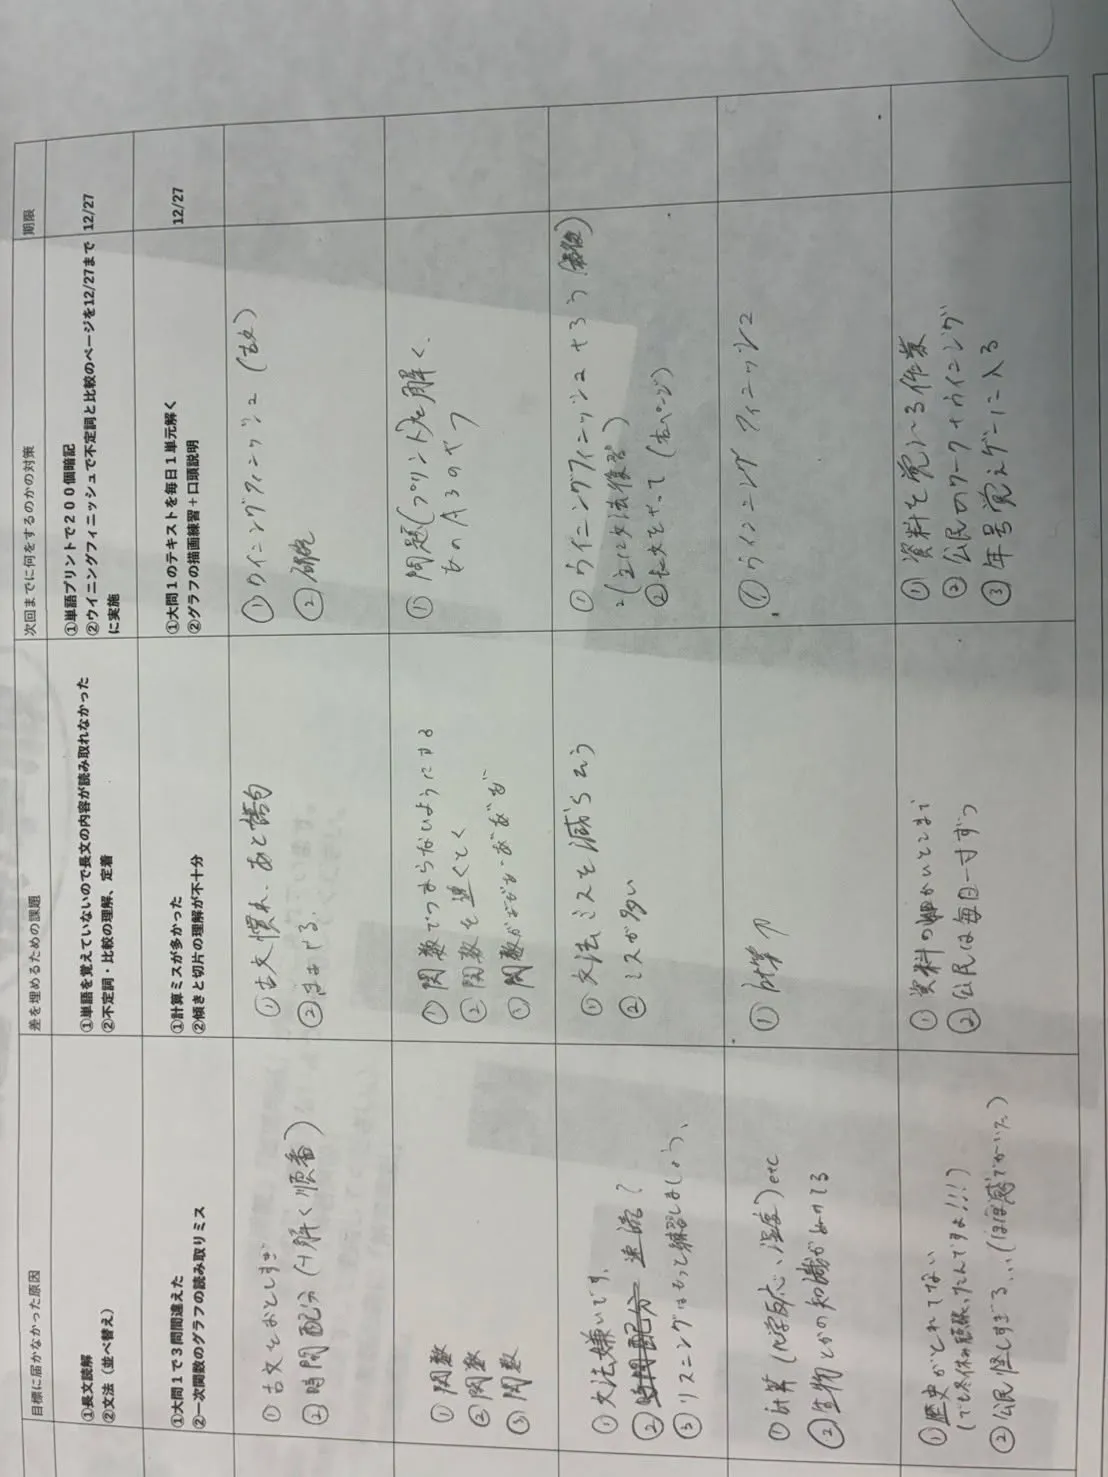 目標に届かなかった原因
差を埋めるための課題
次回までに何をするのかの対策
期限
①長文読解
②文法（並べ替え）
①単語を覚えていないので長文の内容が読み取れなかった
②不定詞・比較の理解、定着
①単語プリントで２００個暗記
②ウイニングフィニッシュで不定詞と比較のページを12/27まで
に実施
12/27
①大問１で３問間違えた
②一次関数のグラフの読み取りミス
①計算ミスが多かった
②傾きと切片の理解が不十分
①大問１のテキストを毎日１単元解く
②グラフの描画練習＋口頭説明
12/27
①古文をおとしすぎ
②時間配分(+解く順番)
①古文慣れ、あと語句
②まよせる。
①ウイニングフィニッシュ(古文)
②
①関数
②関数
③関数
①関数でつまらないようにする
②関数を速くとく
③関数が
①問題(プリント)を解く、
ものA3のやつ
①文法嫌いです。
②時間配分 速読？
③リスニングはもっと練習しましょう、
①文法ミスを減らそう
②ミスが多い
①ウイニングフィニッシュやろう
(主に文法復習)
②長文をやって(右ページ)
①計算(化学反応、湿度)etc
②生物とかの知識がぬけてる
①計算力
①ウイニングフィニッシュ
①歴史がとれてない
(でも冬休み頑張ったんですよ!!!)
②公民怪しすぎる...(ほぼ感でかいた)
①資料の細かいとこまで
②公民は毎日一寸ずつ
①資料を覚える作業
②公民のワーク+ウイニング
③年号覚えゲーに入る